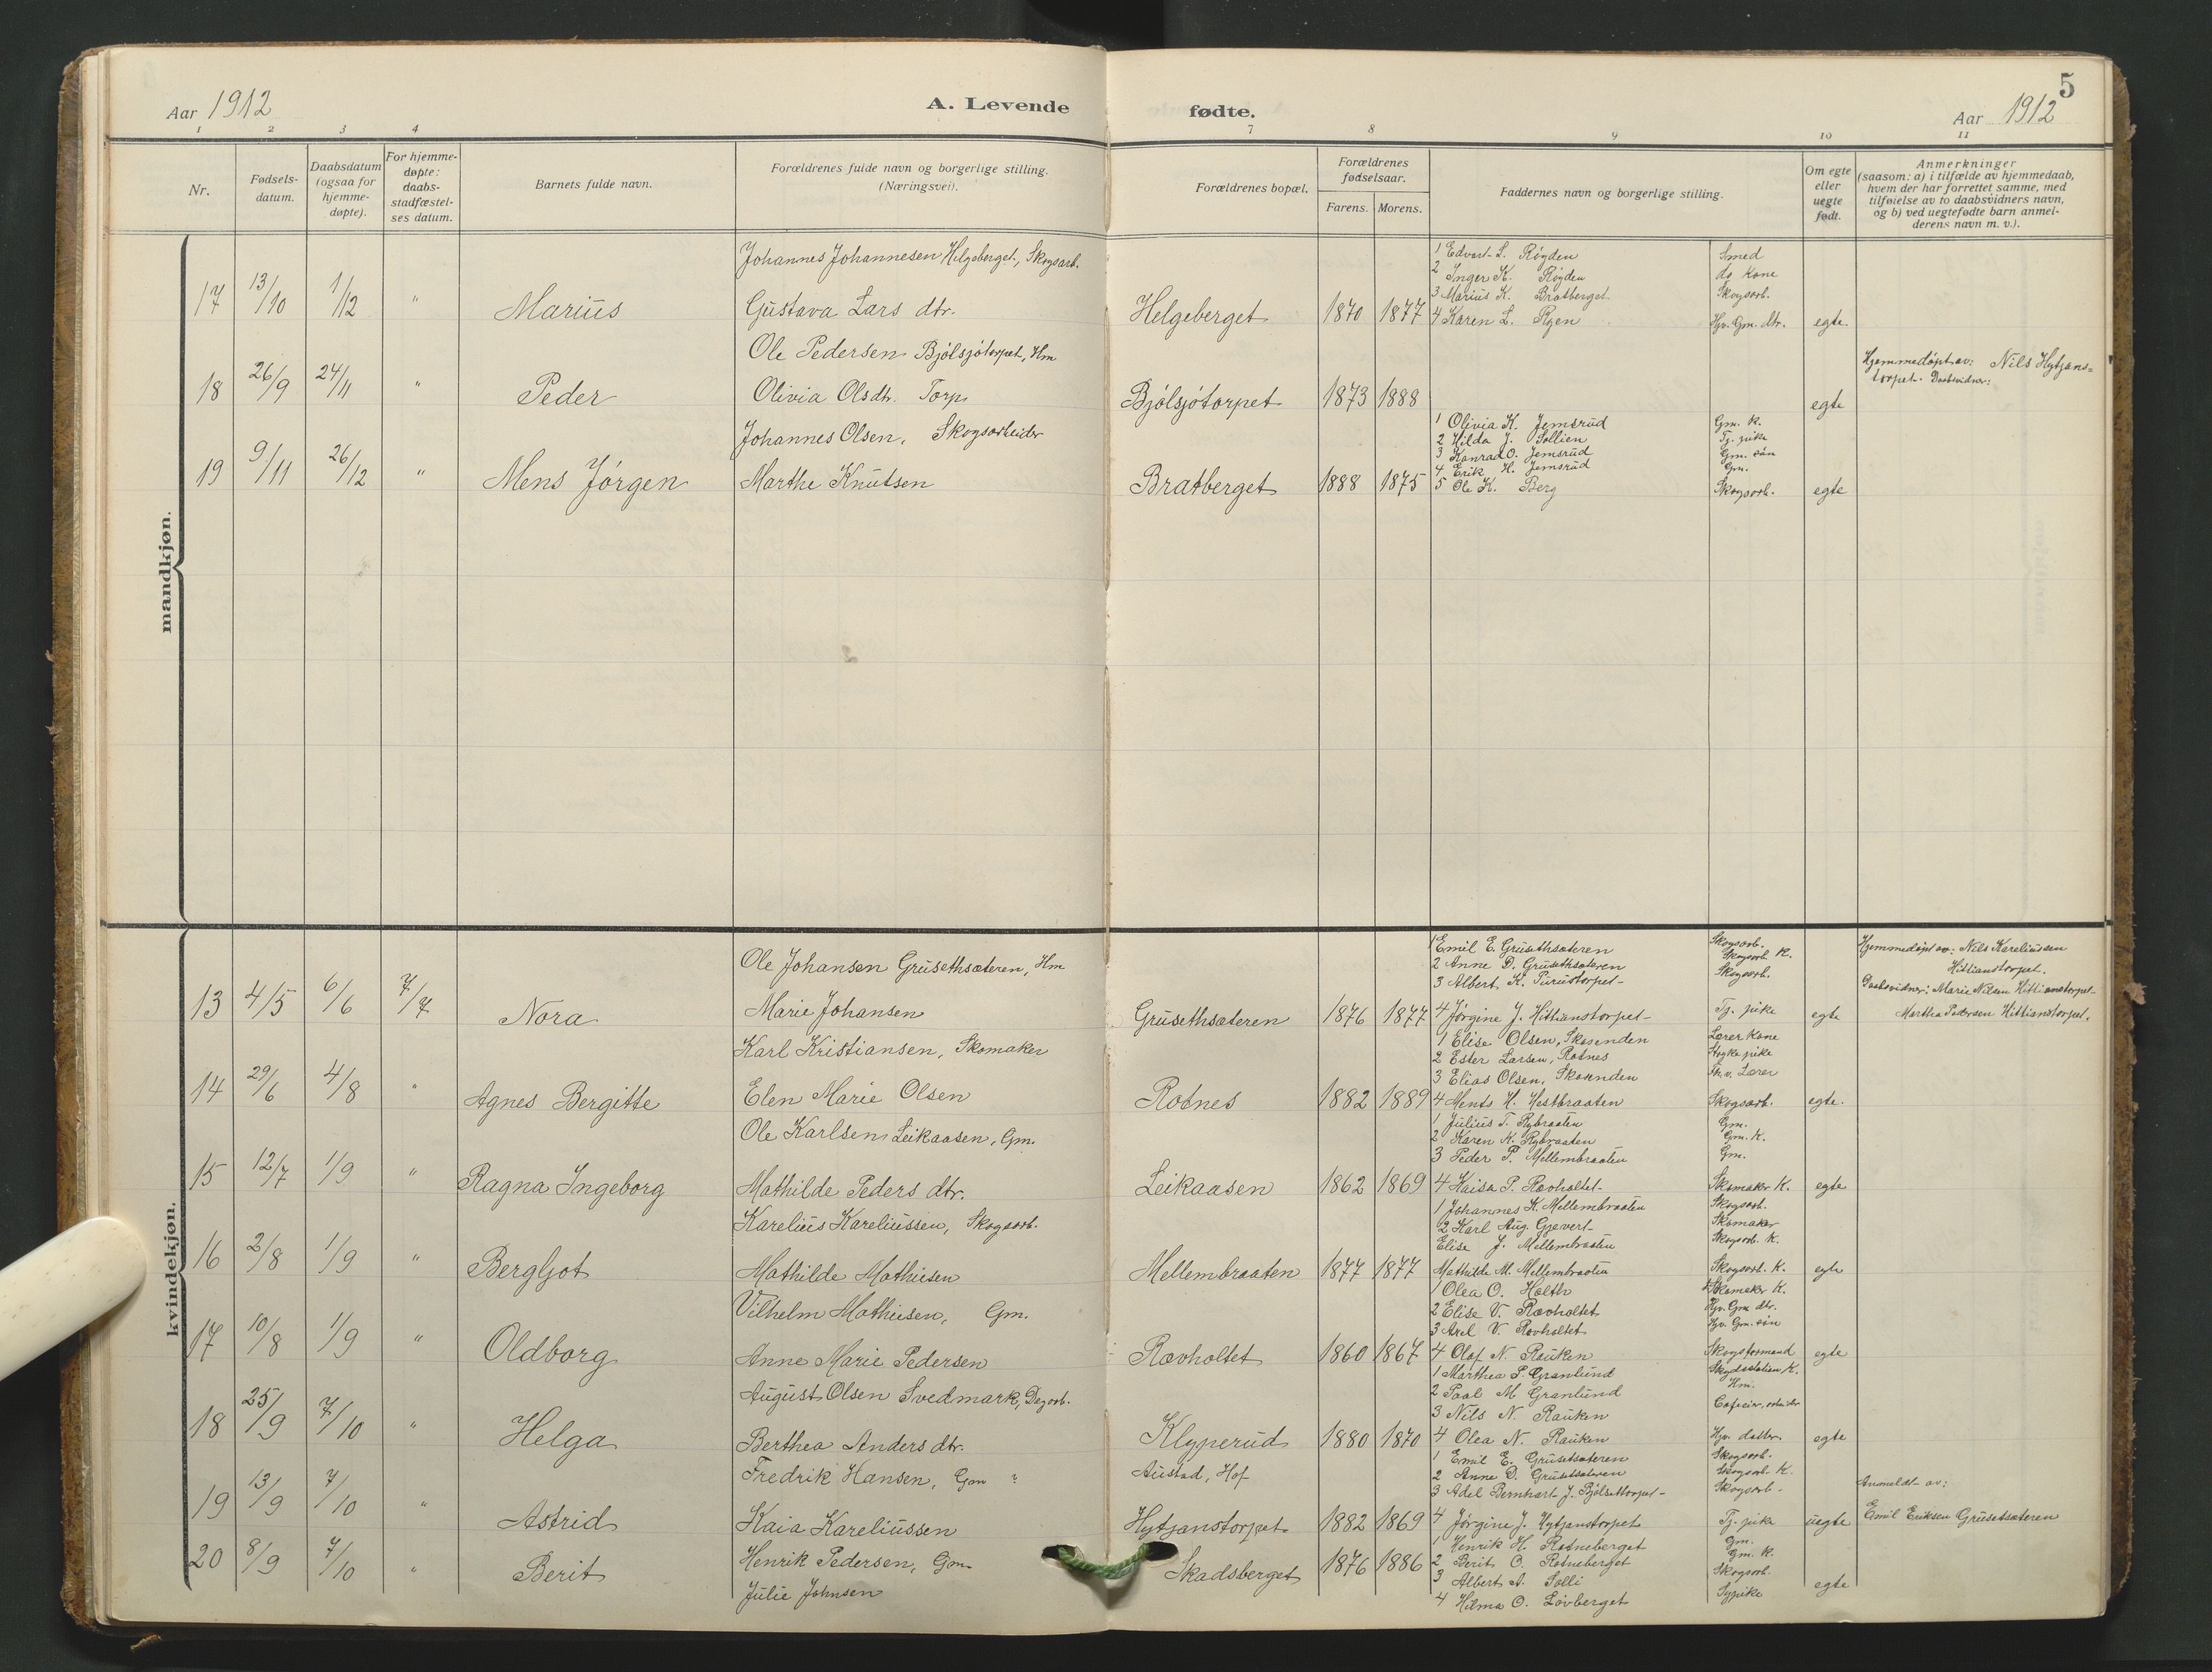 5
Aar 1912
A. Levende fødte.
Aar 1912
1 2 3 4 7 8 9 10 11
Nr.
Fødsels-
datum.
Daabsdatum
(ogsaa for
hjemme-
døpte).
For hjemme-
døpte:
daabs-
stadfæstel-
ses datum.
Barnets fulde navn.
Forældrenes fulde navn og borgerlige stilling.
(Næringsvei).
Forældrenes bopæl.
Forældrenes
fødselsaar.
Farens. Morens.
Faddernes navn og borgerlige stilling.
Om egte
eller
uegte
født.
Anmerkninger
(saasom: a) i tilfælde av hjemmedaab,
hvem der har forrettet samme, med
tilføielse av to daabsvidners navn,
og b) ved uegtefødte barn anmel-
derens navn m. v.).
mandkjøn.
Johannes Johannesen Helgeberget, Skogsarb.
17 13/10 1/12 " Marius Gustava Lars dtr. Helgeberget 1870 1877
1 Edvart L. Røgden Smed
2 Inger K. Røgden do Kone
3 Marius K. Bratberget Skogsarb.
4 Karen L. Ryen Hjv. Gm. dtr. egte.
Ole Pedersen Bjølsjøtorpet, Hm
18 26/9 24/11 " Peder Olivia Olsdtr. Torp Bjølsjøtorpet 1873 1888 egte
Hjemmedøpt av: Nils Hytjans=
torpet. Daabsvidner:
Johannes Olsen, Skogsarbeider
19 9/11 26/12 " Mens Jørgen Marthe Knutsen Bratberget 1888 1875
1 Olivia K. Jemsrud Gm. K.
2 Hilda J. Sollien Tj. pike
3 Konrad O. Jemsrud Gm. søn
4 Erik H. Jemsrud Gm.
5 Ole K. Berg Skogsarb. egte
kvindekjøn.
Ole Johansen Grusethsæteren, Hm
13 4/5 6/6 7/7 Nora Marie Johansen Grusethsæteren 1876 1877
1 Emil E. Grusethsæteren Skogsarb.
2 Anne D. Grusethsæteren Skogsarb. K.
3 Albert K. Purustorpet Skogsarb.
4 Jørgine J. Hittianstorpet Tj. pike egte
Hjemmedøpt av: Nils Kareliussen
Hittianstorpet.
Daabsvidner: Marie Nilsen Hittianstorpet
Martha Pedersen Hittianstorpet.
Karl Kristiansen, Skomaker
14 29/6 4/8 " Agnes Bergitte Elen Marie Olsen Rotnes 1882 1889
1 Elise Olsen, Skasenden Lærer Kone
2 Ester Larsen, Rotnes pike
3 Elias Olsen, Skasenden Lærer
4 Ments H. Hestbraaten Skogsarb. egte.
Ole Karlsen Leikaasen, Gm.
15 12/7 1/9 " Ragna Ingeborg Mathilde Peders dtr. Leikaasen 1862 1869
1 Julius T. Rybraaten Gm.
2 Karen K. Rybraaten Gm. K.
3 Peder P. Mellembraaten Gm.
4 Kaisa P. Rovholtet Skomaker K. egte
Karelius Kareliussen, Skogsarb.
16 2/8 1/9 " Bergljot Mathilde Mathisen Mellembraaten 1877 1877
1 Johannes K. Mellembraaten Skogsarb.
2 Karl Aug. Gjevert Skomaker
Elise J. Mellembraaten Skogsarb. K.
Mathilde M. Mellembraaten Skogsarb. K. egte
Vilhelm Mathiesen, Gm.
17 10/8 1/9 " Oldborg Anne Marie Pedersen Rovholtet 1860 1867
1 Olea O. Holth Skomaker K.
2 Elise V. Rovholtet Hjv. Gm dtr.
3 Axel V. Rovholtet Hjv. Gm. søn
4 Olaf N. Rauken Skogsformand egte
August Olsen Svedmark, Dagarb.
18 25/9 7/10 " Helga Berthea Anders dtr. Klyperud 1880 1870
1 Marthea P. Granlund Skydsstation K.
2 Paal M Granlund Hm.
3 Nils N. Rauken
4 Olea N. Rauken Hjv. datter egte
Fredrik Hansen, Gm ? Austad, Hof
19 13/9 7/10 " Astrid Kaia Kareliussen Hytjanstorpet 1882 1869
1 Emil E. Grusetsæteren Skogsarb.
2 Anne D. Grusetsæteren Skogsarb. K.
3 Adel Bernhart J. Bjølsettorpet Skogsarb.
4 Jørgine J. Hytjanstorpet Tj. pike uegte
Anmeldt av:
Emil Eriksen Grusetsæteren
20 8/9 7/10 " Berit Henrik Pedersen, Gm. Skadsberget 1876 1886
Julie Johnsen
1 Henrik H. Rotneberget Gm.
2 Berit O. Rotneberget Gm. K.
3 Albert A. Solli Skogsarb.
4 Hilma O. Løvberget Sypike egte